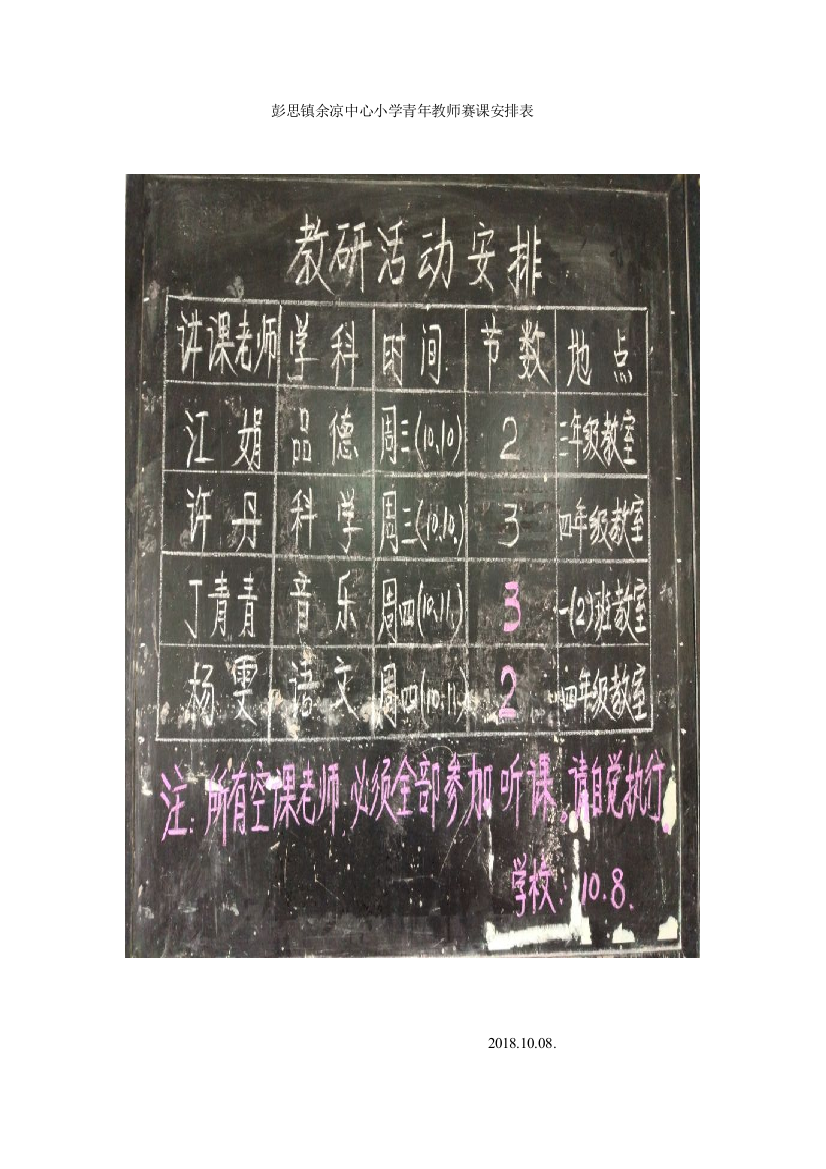 彭思镇余凉中心小学青年教师赛课安排表
教研活动安排
讲课老师 学科 时间 节数 地点
江娟 品德 周三(10.10) 2 三年级教室
许丹 科学 周三(10.10.) 3 四年级教室
丁青青 音乐 周四(10.11.) 3 一(2)班教室
杨雯 语文 周四(10.11.) 2 四年级教室
注:所有空课老师,必须全部参加听课。请自觉执行.
学校:10.8.
2018.10.08.